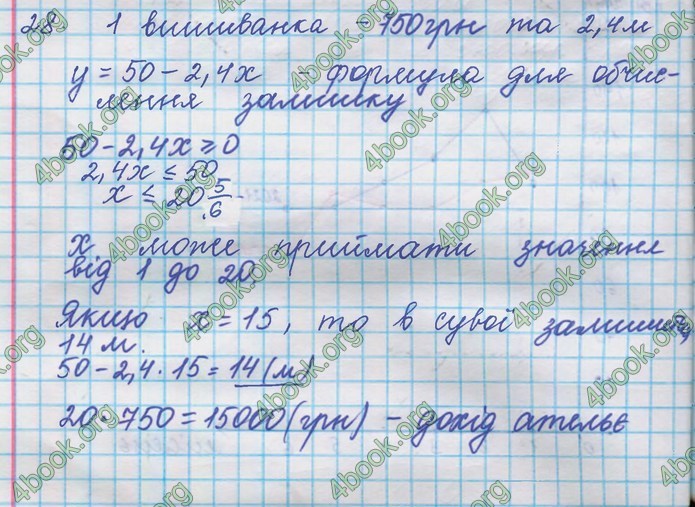 28 1 вишиванка - 750грн та 2,4м
y = 50 - 2,4x - формула для обчис-
лення залишку
50 - 2,4x ≥ 0
2,4x ≤ 50
x ≤ 20 5/6
x може приймати значення
від 1 до 20.
Якщо x = 15, то в сувої залишить
14 м.
50 - 2,4 · 15 = 14 (м)
20 · 750 = 15000 (грн) - дохід ательє
4book.org